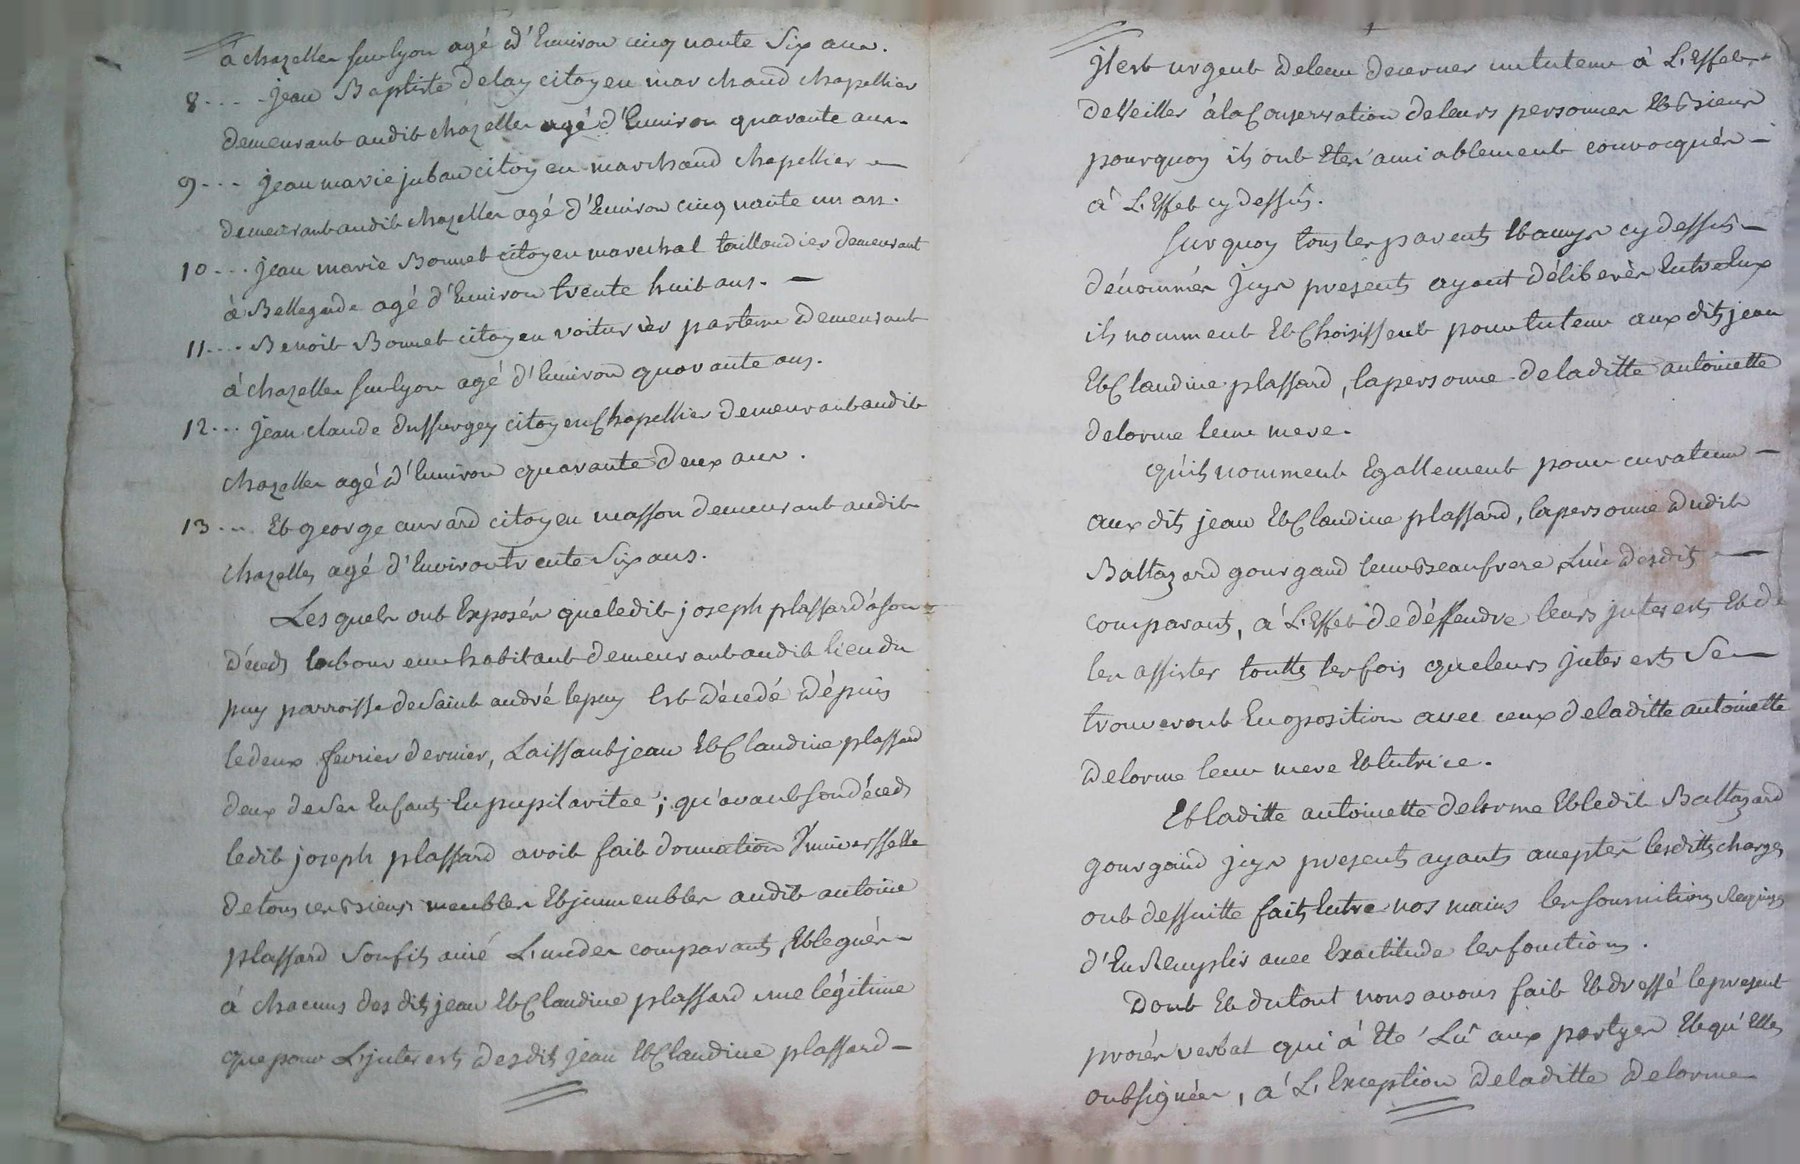 à chazelles sur lyon agé d'Environ cinquante Six ans.
8.... Jean Baptiste delay citoyen marchand chapellier
demeurant audit chazelles agé d'Environ quarante ans.
9... Jean marie juban citoyen marchand chapellier —
demeurant audit chazelles agé d'Environ cinquante un ans.
10... Jean marie Bonnet citoyen marechal taillandier demeurant
à Bellegarde agé d'Environ trente huit ans. —
11.... Benoit Bonnet citoyen voiturier par terre demeurant
à chazelles sur lyon agé d'Environ quarante ans.
12... Jean claude dussurgey citoyen Chapellier demeurant audit
chazelles agé d'Environ quarante deux ans.
13... Et george auvard citoyen masson demeurant audit
chazelles agé d'Environ trente Six ans.
Lesquels ont Exposés que ledit joseph plassard à son
décéds laboureur habitant demeurant audit lieu du
puy parroisse de Saint andré le puy Est décédé dépuis
le deux fevrier dernier, Laissant jean Et Claudine plassard
deux de Ses Enfants En pupilaritée; qu'avant son décéds
ledit joseph plassard avoit fait donnation Universselle
de tous ces Biens meubles Et jmmeubles audit antoine
plassard Son fils ainé L'un des comparants, Et legués
à chacuns desdits jean Et Claudine plassard une légitime
que pour L'jnterests desdits jean Et Claudine plassard —
jl est urgent de leur decerner un tuteur à L'Effet
de Veiller à la Conservation de leurs personnes Et Biens
pourquoy ils ont Etés amiablement convocqués —
à L'Effet cy dessus.
Sur quoy tous les parents Et amys cy dessus —
dénommés jcys presents ayant déliberés Entre Eux
ils nomment Et Choisissent pour tuteur aux dits jean
Et Claudine plassard, la personne de laditte antoinette
delorme leur mere.
qu'ils nomment Egallement pour curateur —
aux dits jean Et Claudine plassard, la personne dudit
Baltazard gourgaud leur Beaufrere, L'un desdits —
comparants, à L'Effet de déffendre leurs jnterests Et de
les assister touttes les fois que leurs jnterests Se —
trouveront En oposition avec ceux de laditte antoinette
delorme leur mere Et tutrice.
Et laditte antoinette delorme Et ledit Baltazard
gourgaud jcys presents ayants acceptés lesdittes charges
ont dessuitte faits Entre nos mains les soumitions Requises
d'En Remplir avec Exactitude les fonctions.
Dont Et du tout nous avons fait Et dressé le present
procés verbal qui à Eté Lû aux partyes Et qu'Elles
ont signées, à L'Exception de laditte delorme